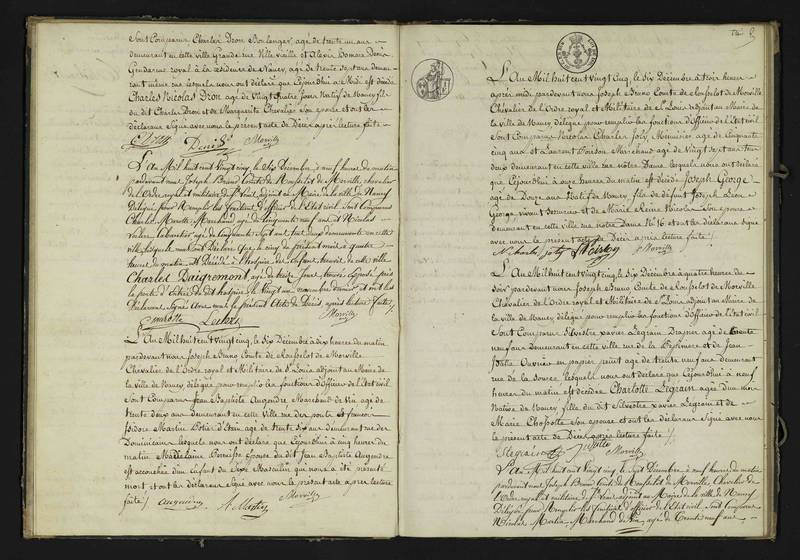 Sont Comparus Charles Dron Boulanger, agé de trente un ans
demeurant en cette ville Grande rue Ville vieille et Alexis
Gendarme royal à la résidence de Nancy, agé de trente sept ans demeu-
rant même rue lesquels nous ont déclaré que Cejourd'hui à Midi est décédé
Charles Nicolas Dron agé de Vingt quatre Jours Natif de Nancy fils
du dit Charles Dron et de Marguerite Chevalier Son épouse et ont les
déclarans Signé avec nous le présent acte de Décès après lecture faite
Morville
L'An Mil huit cent Vingt cinq, le Six Décembre, à neuf heures du matin
pardevant nous Joseph Bruno Comte de Rousselot de Morville, chevalier
de l'Ordre royal et militaire de St Louis, adjoint au Maire de la ville de Nancy
Délégué pour Remplir les fonctions d'officier de l'Etat civil, Sont Comparus
Charles Marotte, Marchand agé de Cinquante neuf ans et Nicolas
agé de Cinquante Sept ans, tous deux demeurants en cette
ville lesquels nous ont Déclaré que le cinq du présent mois à quatre
heures du matin, est Décédé à l'hospice des Enfans trouvés de cette ville
Charles Daigremont, agé de treize Jours, trouvé Exposé près
la porte d'Entrée du dit hospice le Vingt un novembre dernier et ont les
Déclarans Signé Avec nous le présent Acte de Décès, après lecture faite
C. marotte Morville
L'An Mil huit cent Vingt cinq, le Six Décembre à dix heures du matin
pardevant nous Joseph Bruno Comte de Rousselot de Morville
Chevalier de l'Ordre royal et Militaire de St Louis adjoint au Maire de
la ville de Nancy délégué pour remplir les fonctions d'Officier de l'Etat civil
Sont Comparus Jean Baptiste Augendre Marchand de Vin agé de
trente deux ans demeurant en cette Ville rue des ponts et françois
Isidore Martin Potier d'Etain agé de trente Six ans demeurant rue des
Dominicains lesquels nous ont déclaré que Cejourd'hui à Cinq heures du
matin Madelaine épouse du dit Jean Baptiste Augendre
est accouchée d'un Enfant du Sexe Masculin qui nous a été présenté
mort et ont les déclarans Signé avec nous le présent acte après lecture
faite Augendre Martin Morville
L'An Mil huit cent Vingt Cinq, le Six Décembre à trois heures
après midi pardevant nous Joseph Bruno Comte de Rousselot de Morville
Chevalier de l'Ordre royal et Militaire de St Louis adjoint au Maire de
la Ville de Nancy délégué pour remplir les fonctions d'Officier de l'Etat civil
Sont Comparus Nicolas Charles Joly, Menuisier agé de Cinquante
Cinq ans et Laurent Poirson Marchand agé de Vingt Sept ans tous
deux demeurant en cette Ville rue notre Dame lesquels nous ont déclaré
que Cejourd'hui à onze heures du matin est décédé Joseph George
agé de Douze ans Natif de Nancy fils de défunt Joseph
George, Vivant et de Marie Reine Nicolas Son épouse
demeurant en cette ville rue notre Dame No 16 et ont les déclarans signé
avec nous le présent acte de Décès après lecture faite
N Charles Joly Poirson Morville
L'An Mil huit cent Vingt cinq, le Six Décembre à quatre heures du
Soir pardevant nous Joseph Bruno Comte de Rousselot de Morville
Chevalier de l'Ordre royal et Militaire de St Louis adjoint au Maire de
la ville de Nancy délégué pour remplir les fonctions d'officier de l'Etat civil
Sont Comparus Silvestre Xavier Legrain Drapier agé de trente
neuf ans demeurant en cette ville rue de la Pépinière et de Jean
Ouvrier en papier peint agé de trente neuf ans Demeurant
rue de la Source lesquels nous ont déclaré que Cejourd'hui à neuf
heures du matin est décédée Charlotte Legrain agée d'un mois
Native de Nancy fille du dit Silvestre Xavier Legrain et de
Marie Son épouse et ont les déclarans Signé avec nous
le présent acte de Décès après lecture faite
Legrain Morville
L'An Mil huit cent Vingt cinq, le Sept Décembre à neuf heures du matin
pardevant nous Joseph Bruno Comte de Rousselot de Morville, Chevalier de
l'Ordre royal et militaire de St Louis adjoint au Maire de la ville de Nancy
Délégué pour Remplir les fonctions d'officier de l'Etat civil, Sont Comparus
Nicolas Marchand de Vin, agé de Trente neuf ans